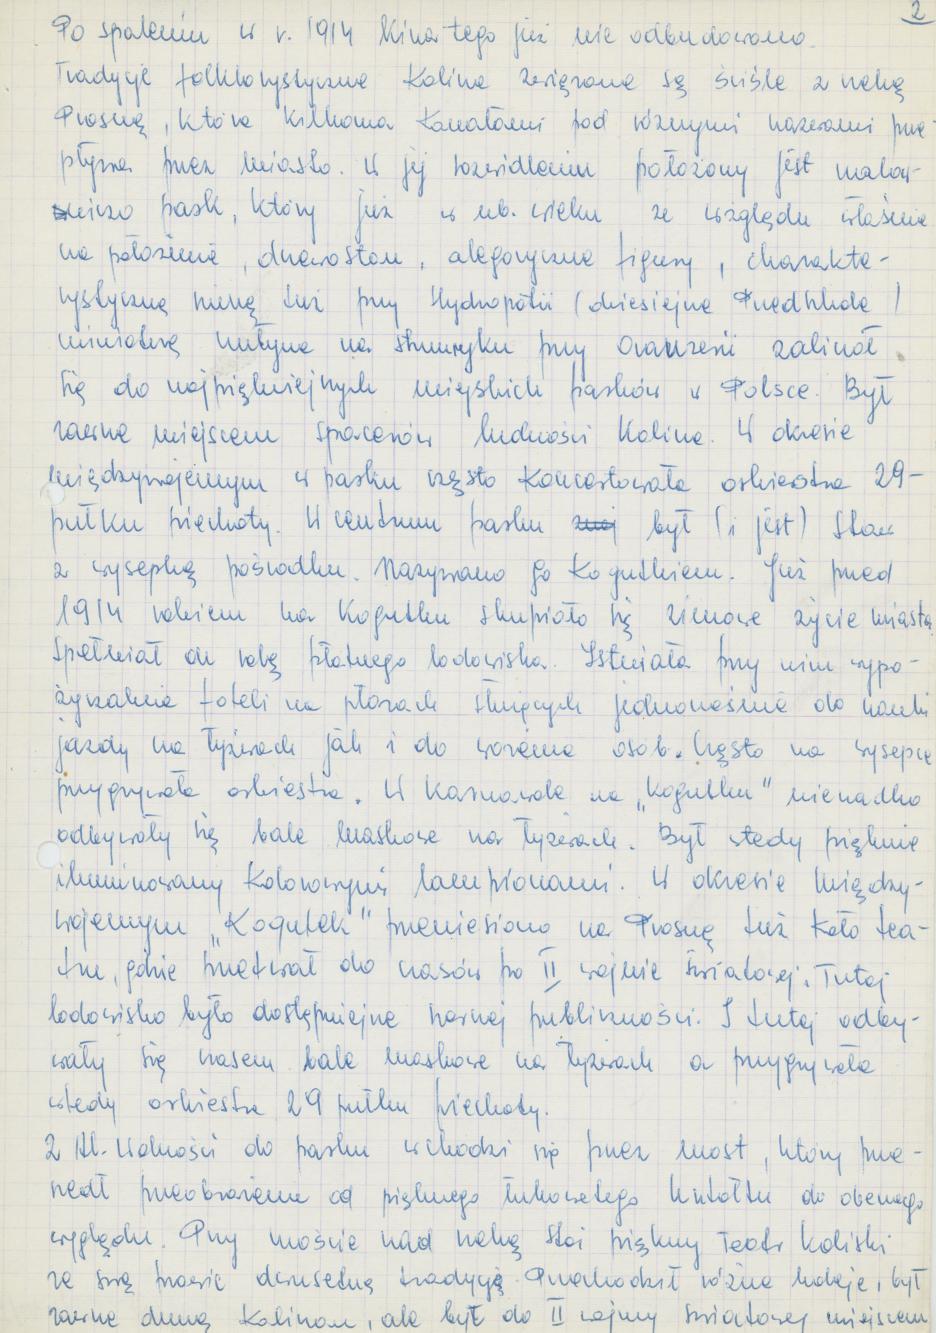 2
Po spaleniu w r. 1914 kina tego już nie odbudowano.
Tradycje folklorystyczne Kalisza związane są ściśle z rzeką
Prosną, która kilkoma kanałami pod różnymi nazwami prze-
pływa przez miasto. W jej rozwidleniu położony jest malow-
niczo park, który już w ub. wieku ze względu właśnie
na położenie, drzewostan, alegoryczne figury, charakte-
rystyczną ruinę tuż przy Hydropatii (dzisiejsze Przedszkole)
miniaturę młyna na strumyku przy Oranżerii zaliczał
się do najpiękniejszych miejskich parków w Polsce. Był
zawsze miejscem spacerów ludności Kalisza. W okresie
międzywojennym w parku często koncertowała orkiestra 29-
pułku piechoty. W centrum parku był (i jest) staw
z wysepką pośrodku. Nazywano go Kogutkiem. Już przed
1914 rokiem na Kogutku skupiało się zimowe życie miasta.
Spełniał on rolę płatnego lodowiska. Istniała przy nim wypo-
życzalnia foteli na płozach służących jednocześnie do nauki
jazdy na łyżwach jak i do wożenia osób. Często na wysepce
przygrywała orkiestra. W karnawale na "Kogutku" nierzadko
odbywały się bale maskowe na łyżwach. Był wtedy pięknie
iluminowany kolorowymi lampionami. W okresie między-
wojennym "Kogutek" przeniesiono na Prosnę tuż koło tea-
tru, gdzie przetrwał do czasów po II wojnie światowej. Tutaj
lodowisko było dostępniejsze szerszej publiczności. I tutaj odby-
wały się czasem bale maskowe na łyżwach a przygrywała
wtedy orkiestra 29 pułku piechoty.
Z Al. Wolności do parku wchodzi się przez most, który prze-
szedł przeobrażenia od pięknego łukowatego kształtu do obecnego
wyglądu. Przy moście nad rzeką stoi piękny Teatr kaliski
ze swą prawie dwusetną tradycją. Przechodził różne koleje, był
zawsze dumą Kaliszan, ale był do II wojny światowej miejscem